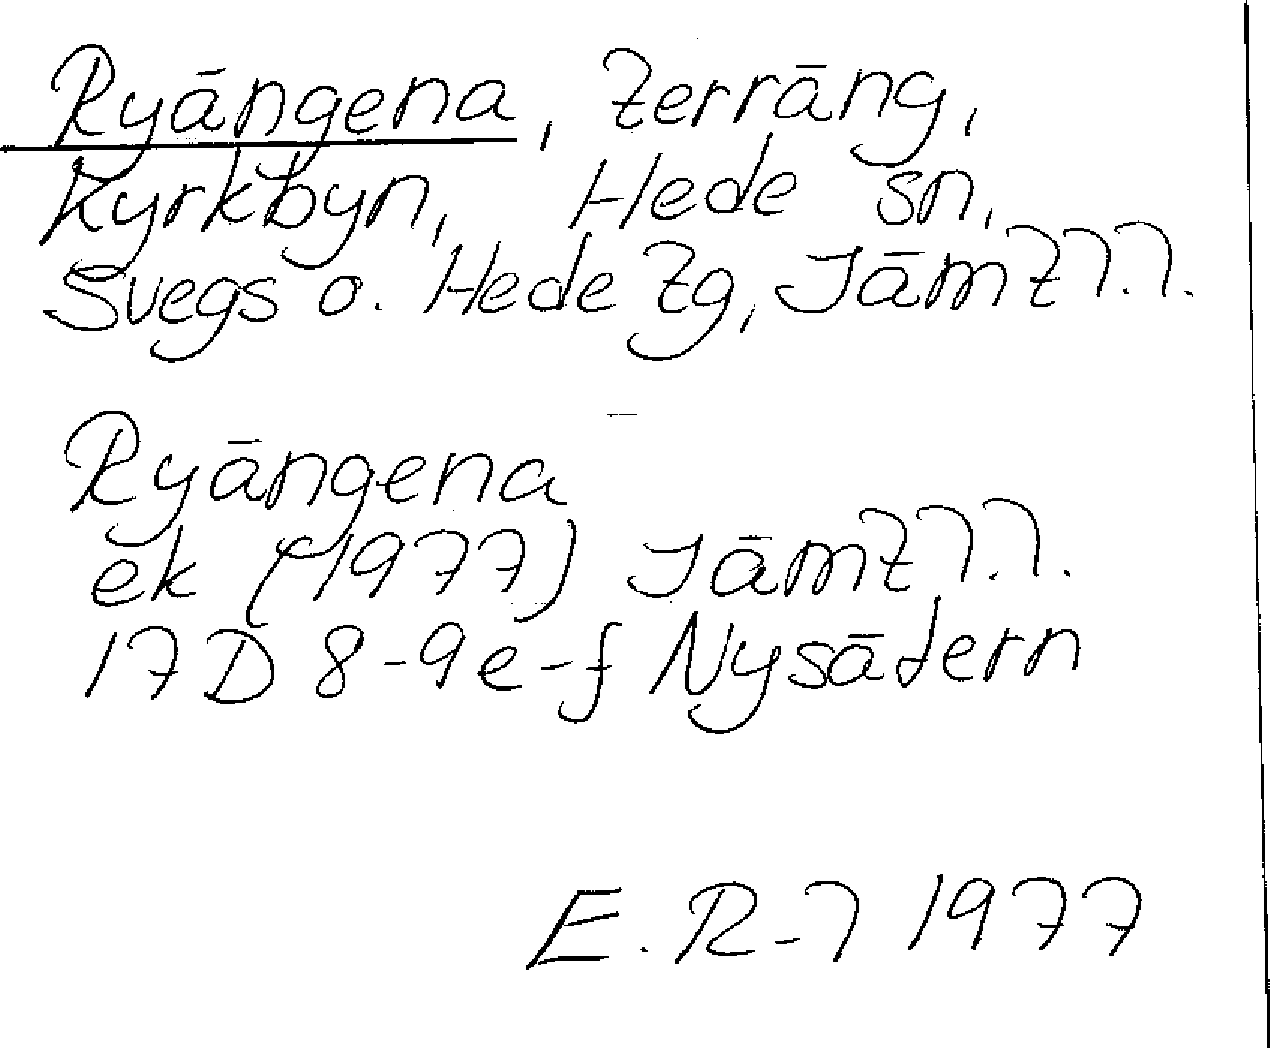 Ryängena, terräng,
Kyrkbyn, Hede sn,
Svegs o. Hede tg, Jämtl.l.
Ryängena
ek (1977) Jämtl.l.
17D 8-9e-f Nysätern
E. R-l 1977